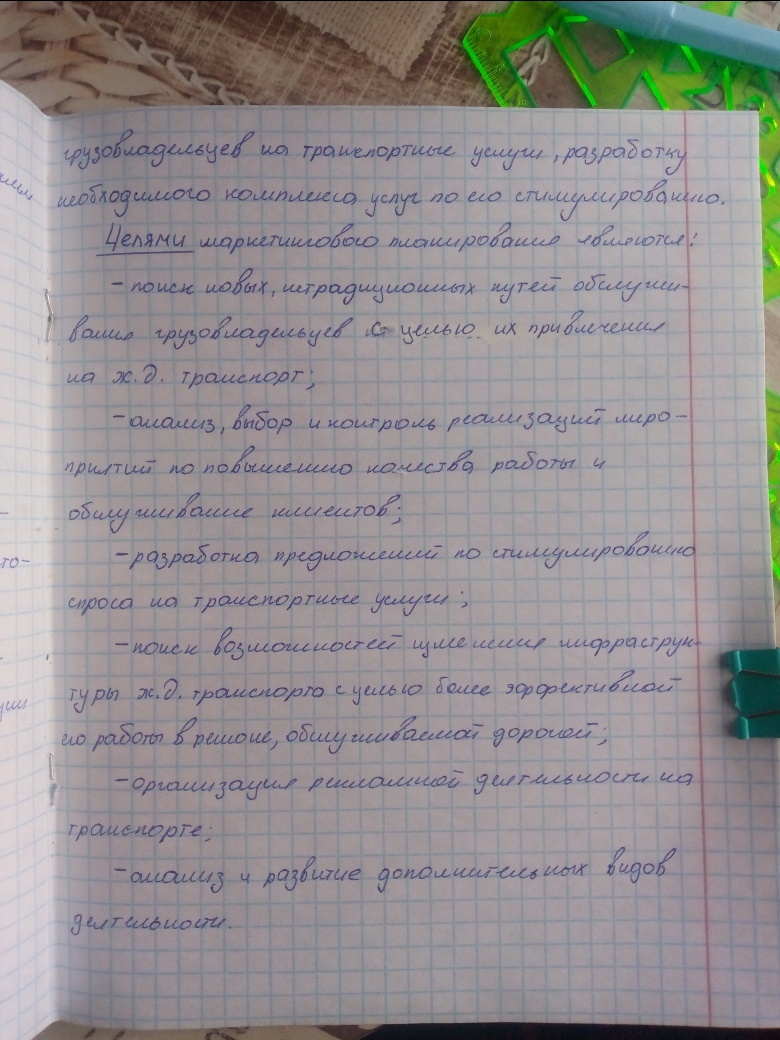 грузовладельцев на транспортные услуги, разработку
необходимого комплекса услуг по его стимулированию.
Целями маркетингового планирования являются:
- поиск новых, нетрадиционных путей обслужи-
вания грузовладельцев с целью их привлечения
на ж.д. транспорт;
- анализ, выбор и контроль реализаций меро-
приятий по повышению качества работы и
обслуживание клиентов;
- разработка предложений по стимулированию
спроса на транспортные услуги;
- поиск возможностей изменения инфраструк-
туры ж.д. транспорта с целью более эффективной
его работы в регионе, обслуживаемой дорогой;
- организация рекламной деятельности на
транспорте;
- анализ и развитие дополнительных видов
деятельности.